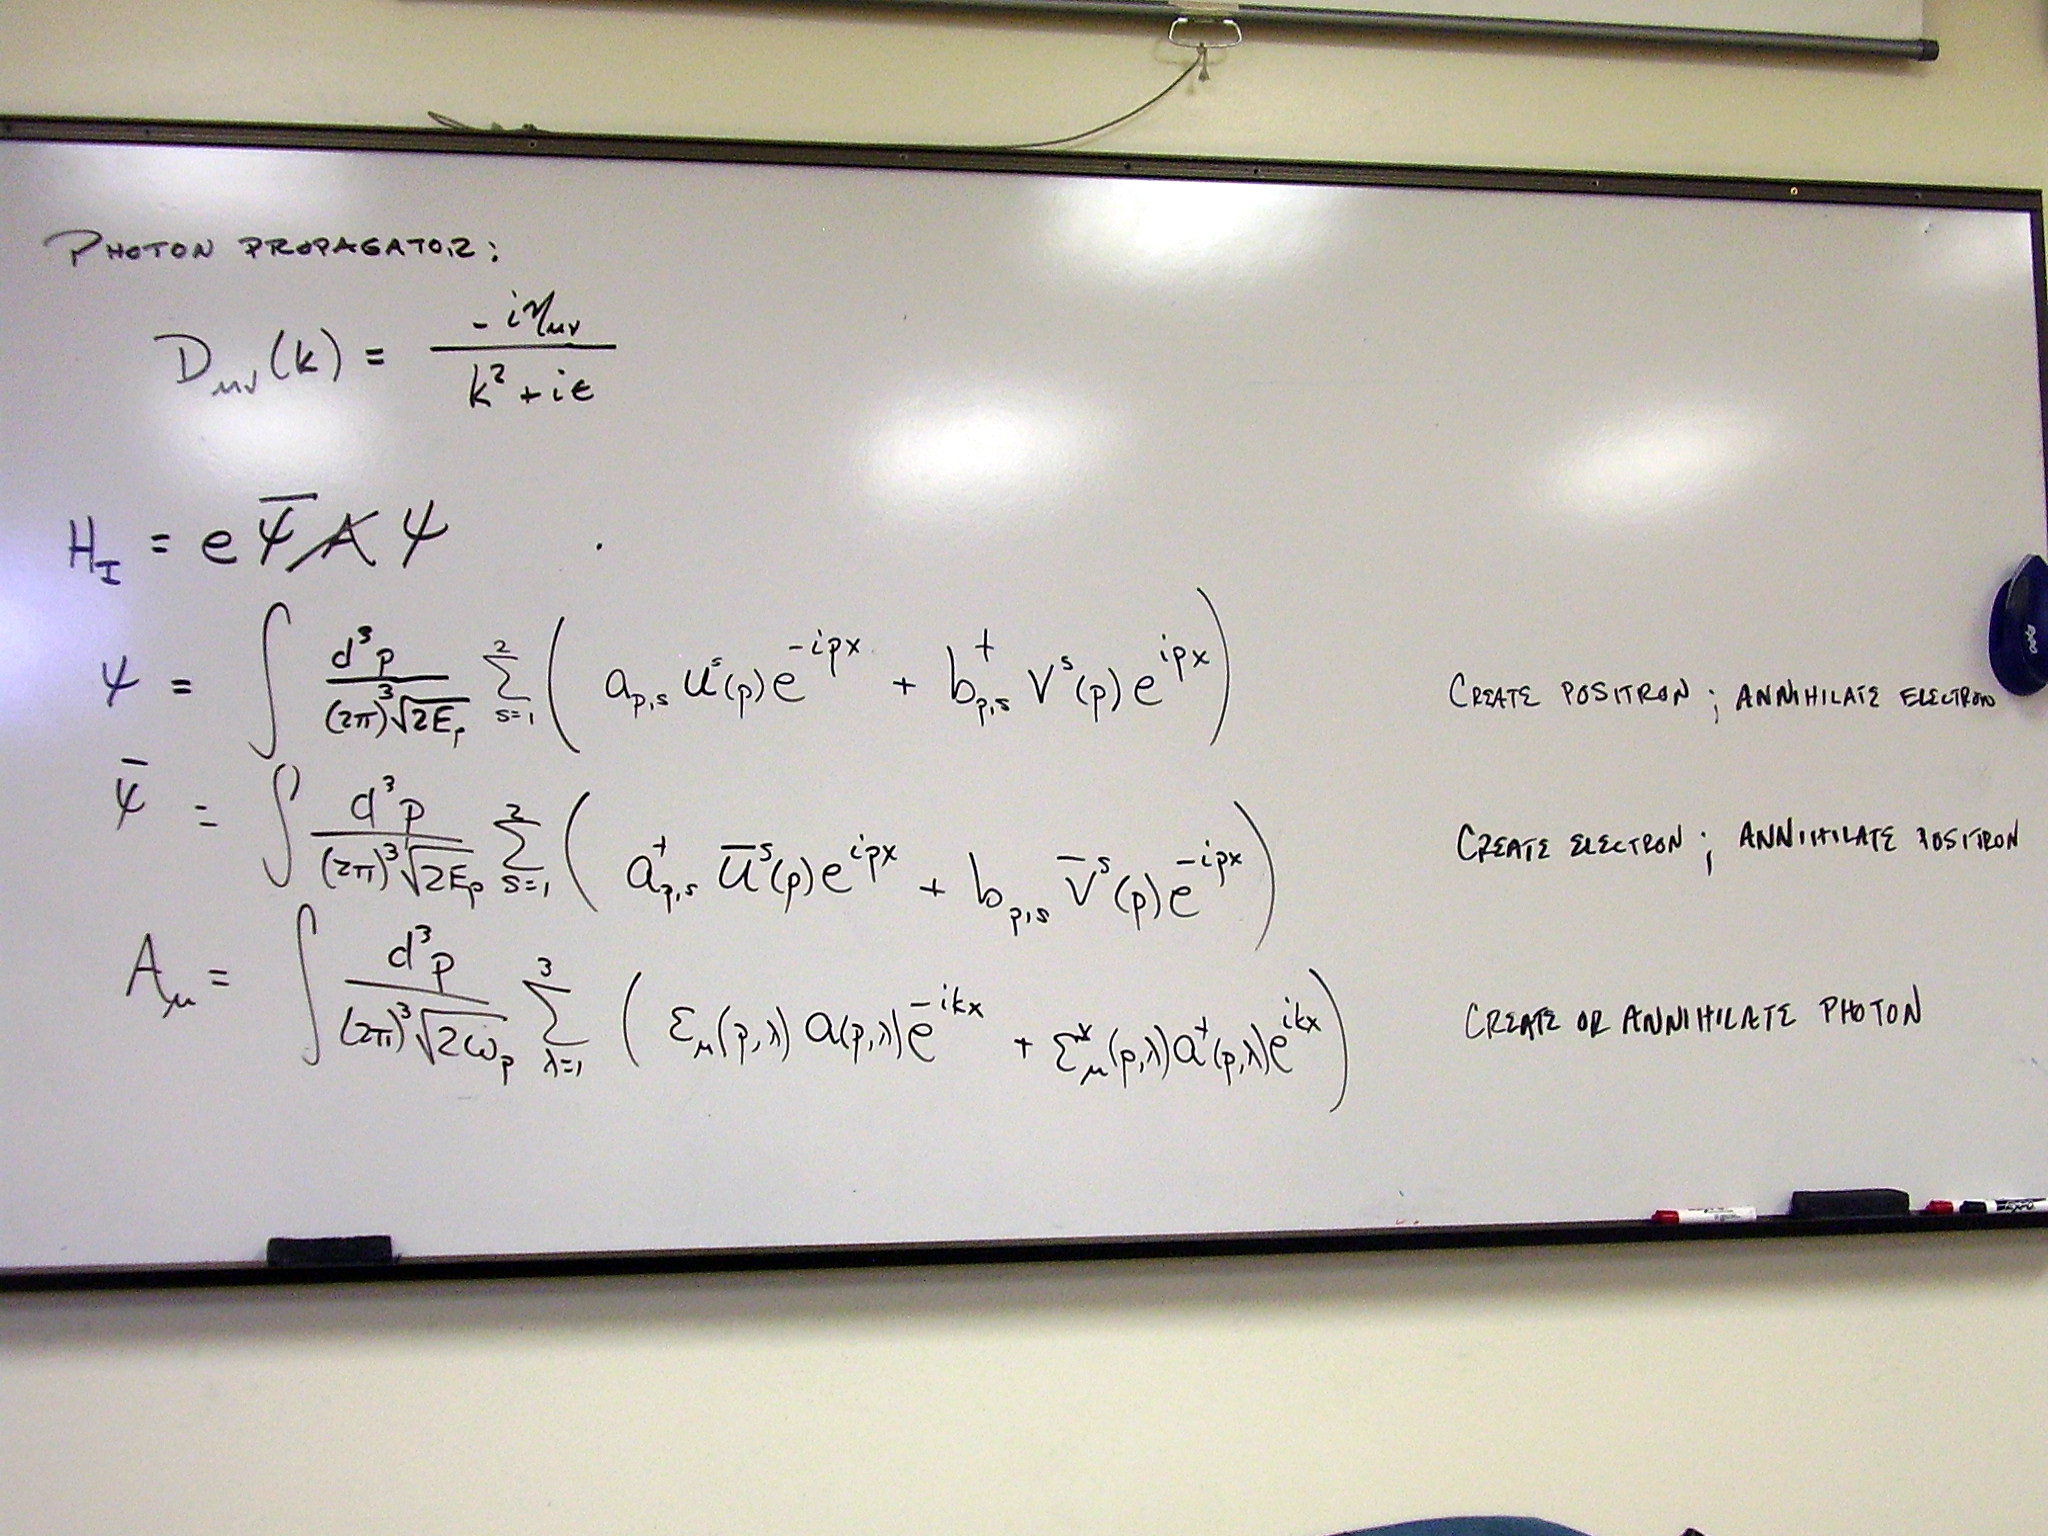 PHOTON PROPAGATOR:
D_μν(k) = -iη_μν / (k² + iϵ)
H_I = e ψ̄ A̸ ψ
ψ = ∫ d³p / ((2π)³√(2E_p)) Σ_{s=1}^{2} ( a_{p,s} u^s(p) e^{-ipx} + b†_{p,s} v^s(p) e^{ipx} ) CREATE POSITRON ; ANNIHILATE ELECTRON
ψ̄ = ∫ d³p / ((2π)³√(2E_p)) Σ_{s=1}^{2} ( a†_{p,s} ū^s(p) e^{ipx} + b_{p,s} v̄^s(p) e^{-ipx} ) CREATE ELECTRON ; ANNIHILATE POSITRON
A_μ = ∫ d³p / ((2π)³√(2ω_p)) Σ_{λ=1}^{3} ( ε_μ(p,λ) a(p,λ) e^{-ikx} + ε*_μ(p,λ) a†(p,λ) e^{ikx} ) CREATE OR ANNIHILATE PHOTON